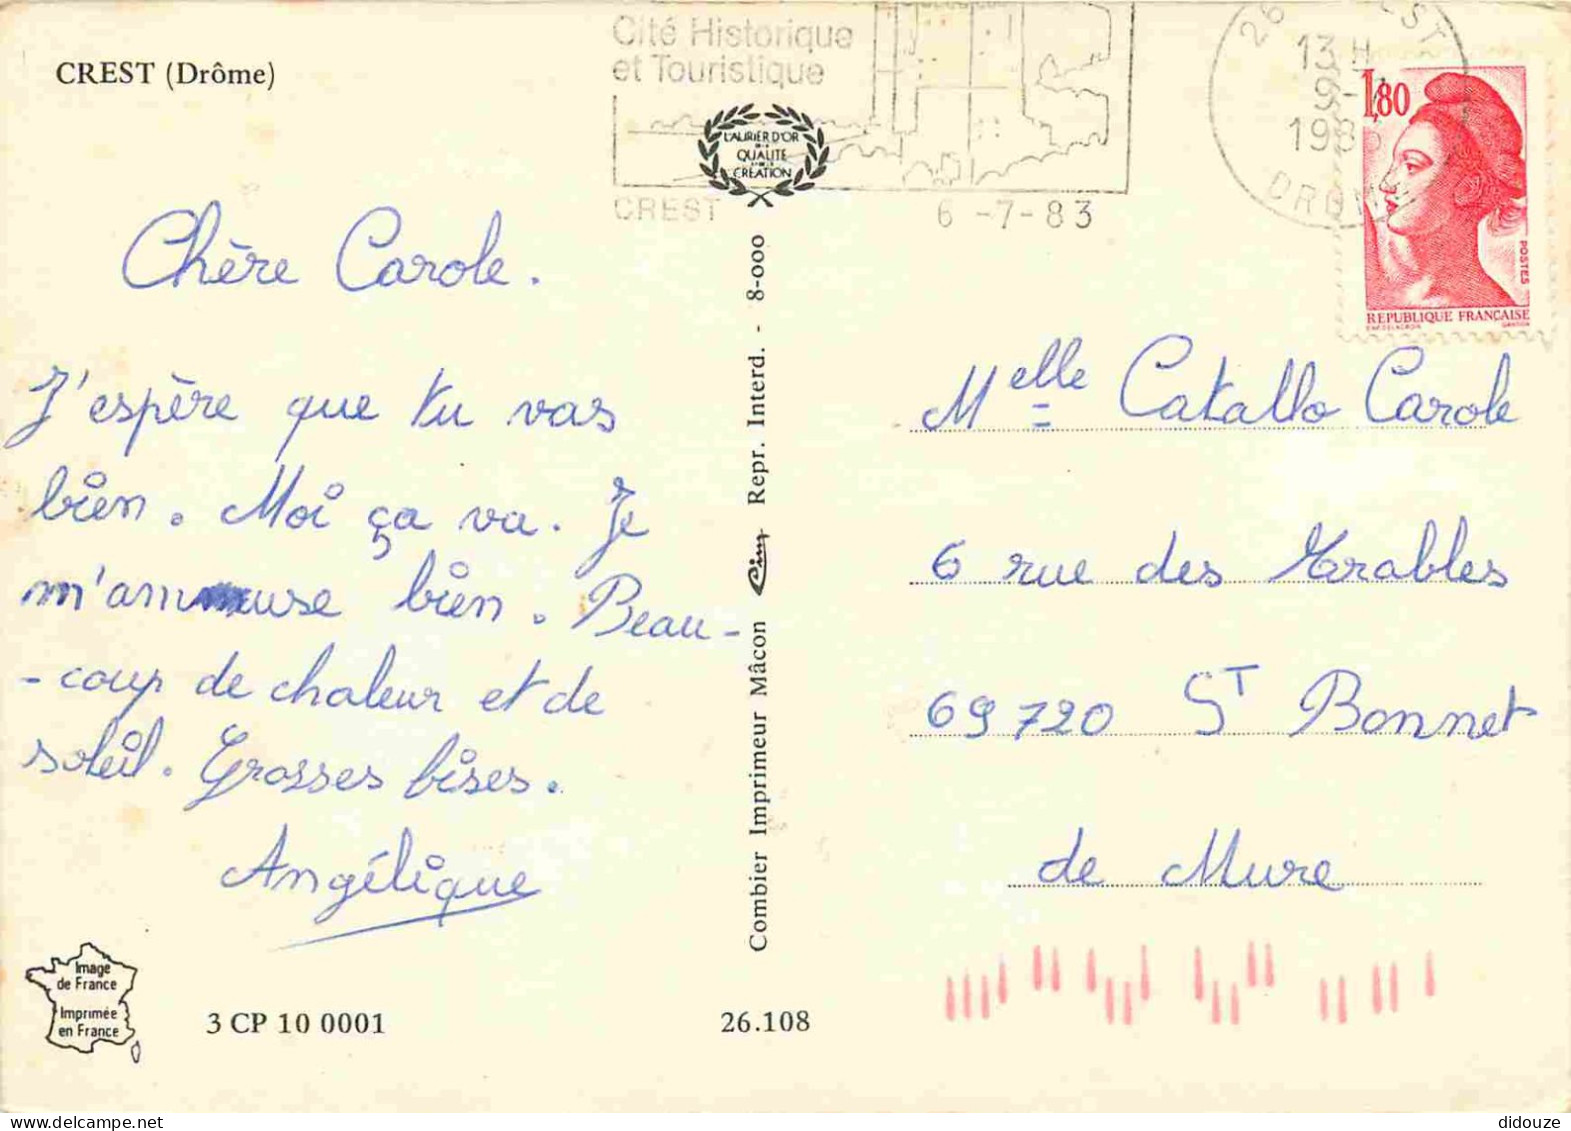 CREST (Drôme)
Cité Historique
et Touristique
CREST
6 -7-83
LAURIER D'OR
QUALITÉ
CRÉATION
26
CREST
13 H
9-7
1983
DROME
1,80
POSTES
REPUBLIQUE FRANÇAISE
Chère Carole.
J'espère que tu vas
bien. Moi ça va. Je
m'amuse bien. Beau-
-coup de chaleur et de
soleil. Grosses bises.
Angélique
Combier Imprimeur Mâcon Cim Repr. Interd. - 8-000
Melle Catallo Carole
6 rue des Erables
69720 ST Bonnet
de Mure
Image
de France
Imprimée
en France
3 CP 10 0001
26.108
didouze